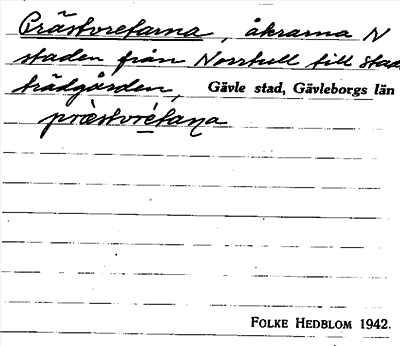 Prästvretarna, åkrarna N
staden från Norrtull till stads
trädgården, Gävle stad, Gävleborgs län
præ̀stvrétaṇa
FOLKE HEDBLOM 1942.